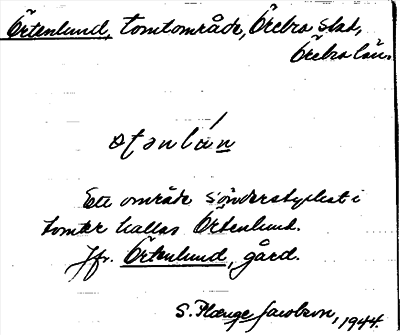 Örtenlund, tomtområde, Örebro stad,
Örebro län.
Ett område sönderstyckat i
tomter kallas Örtenlund.
Jfr. Örtenlund, gård.
S. Flænge Jacobson, 1944.